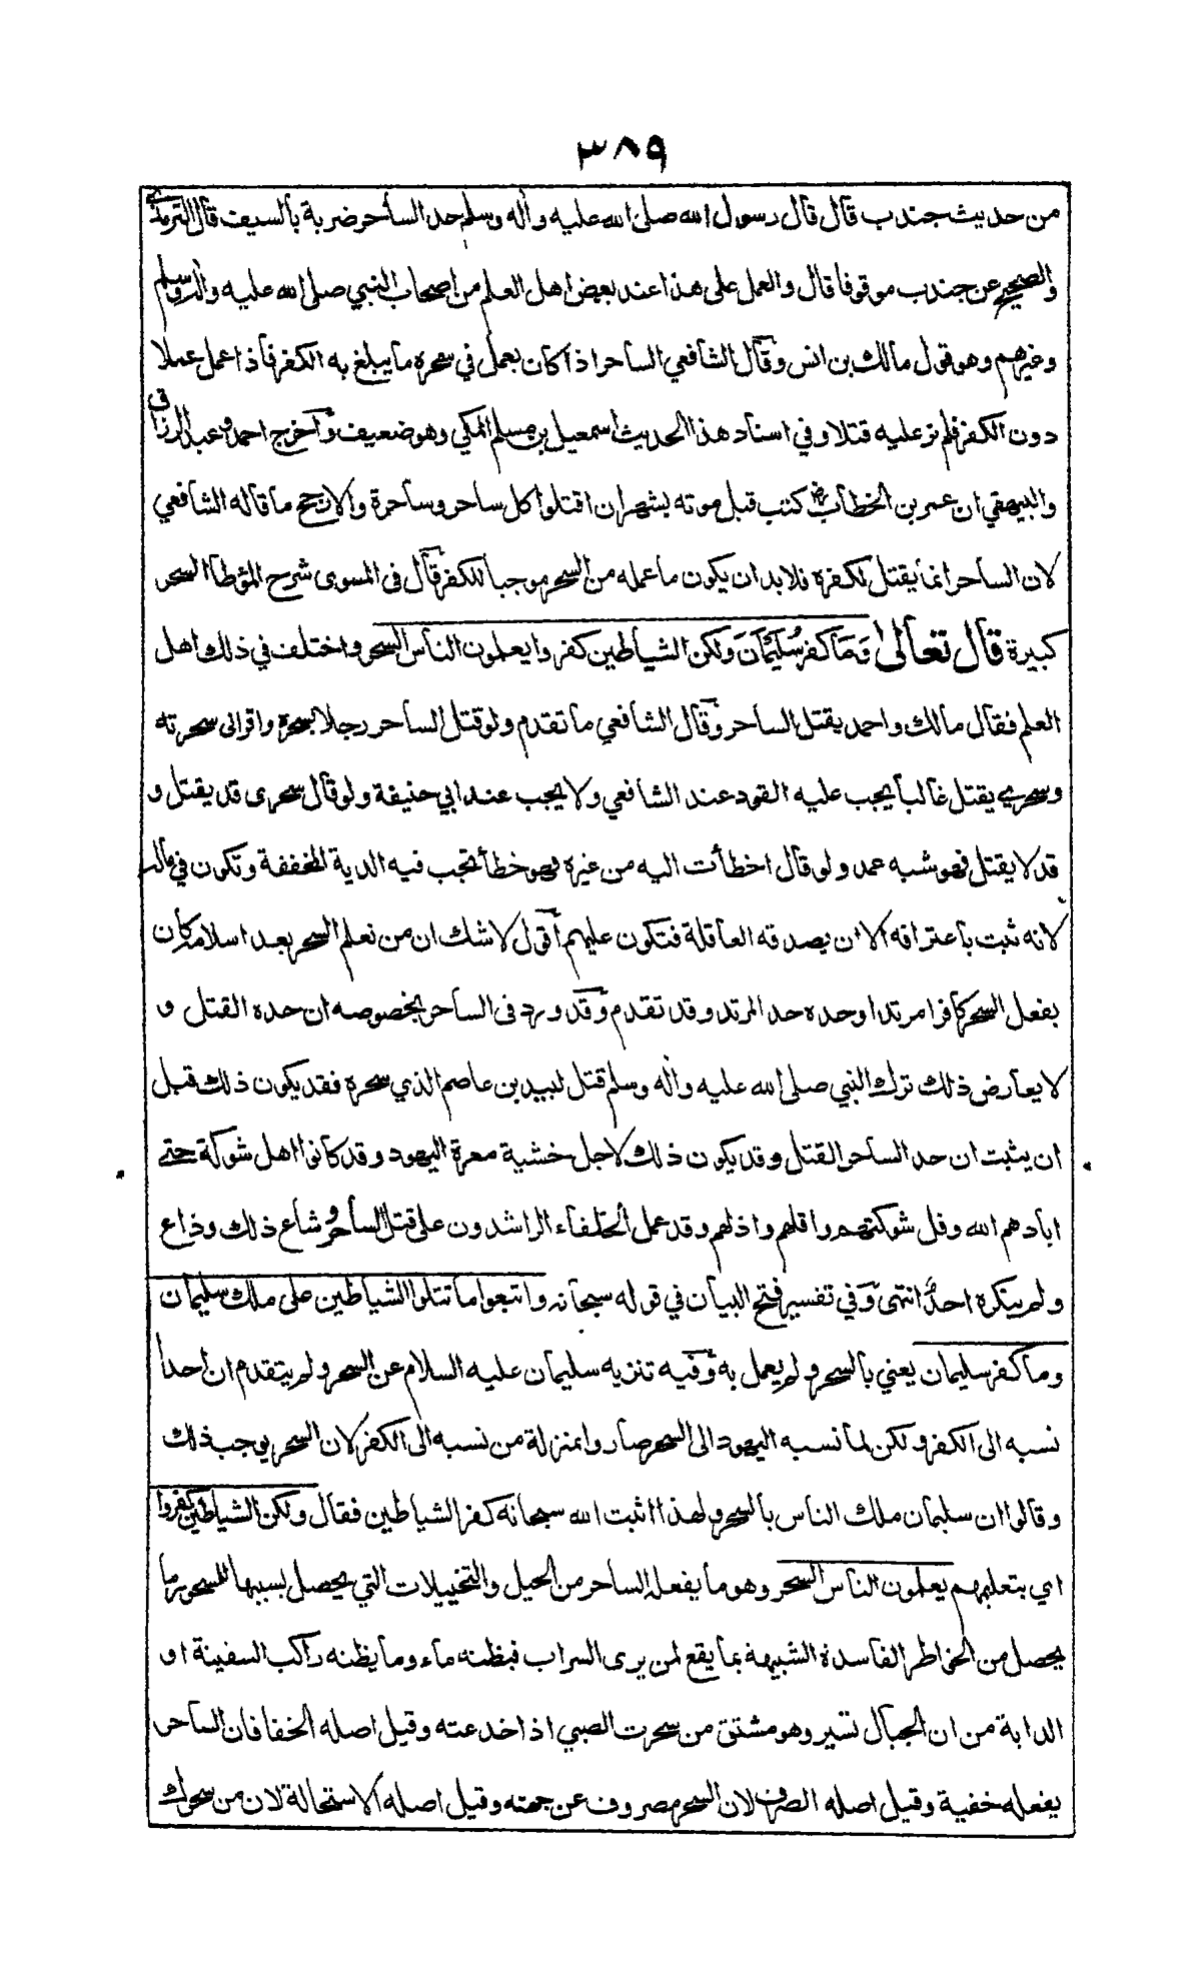 ٣٨٩
من حديث جندب قال قال رسول الله صلى الله عليه وأله وسلم حد الساحر ضربة بالسيف قال الترمذي
والصحيح عن جندب موقوفا قال والعمل على هذا عند بعض اهل العلم من اصحاب النبي صلى الله عليه واله وسلم
وغيرهم وهو قول مالك بن انس وقال الشافعي الساحر اذا كان يعمل في سحره ما يبلغ به الكفر فاذا عمل عملا
دون الكفر فلم نر عليه قتلا وفي اسناد هذا الحديث اسمعيل بن مسلم المكي وهو ضعيف وأخرج احمد وعبد الرزاق
والبيهقي ان عمر بن الخطاب رض كتب قبل موته بشهر ان اقتلوا كل ساحر وساحرة والارجح ما قاله الشافعي
لان الساحر انما يقتل لكفره فلا بد ان يكون ما عمله من السحر موجبا للكفر قال فى المسوى شرح المؤطا السحر
كبيرة قال تعالى وَمَا كفر سُلَيْمَانَ ولكن الشياطين كفروا يعلمون الناس السحر واختلف في ذلك اهل
العلم فقال مالك واحمد يقتل الساحر وقال الشافعي ما تقدم ولو قتل الساحر رجلا بسحره واقر انى سحرته
وسحري يقتل غالبا يجب عليه القود عند الشافعي ولا يجب عند ابي حنيفة ولو قال سحرى قد يقتل و
قد لا يقتل فهو شبه عمد ولو قال اخطأت اليه من غيره فهو خطأ تجب فيه الدية المخففة وتكون في ماله
لانه ثبت باعترافه الا ان يصدقه العاقلة فتكون عليهم أقول لا شك ان من تعلم السحر بعد اسلامه كان
بفعل السحر كافرا مرتدا وحده حد المرتد وقد تقدم وقد ورد فى الساحر بخصوصه ان حده القتل و
لا يعارض ذلك ترك النبي صلى الله عليه وأله وسلم قتل لبيد بن عاصم الذي سحره فقد يكون ذلك قبل
ان يثبت ان حد الساحر القتل وقد يكون ذلك لاجل خشية معرة اليهود وقد كانوا اهل شوكة حتے
ابادهم الله وفل شوكتهم واقلهم واذلهم وقد عمل الخلفاء الراشدون على قتل الساحر وشاع ذلك وذاع
ولم ينكره احدٌ انتهى وفي تفسير فتح البيان في قوله سبحانه واتبعوا ما تتلوا الشياطين على ملك سليمان
وما كفر سليمان يعني بالسحر ولم يعمل به وفيه تنزيه سليمان عليه السلام عن السحر ولم يتقدم ان احدا
نسبه الى الكفر ولكن لما نسبه اليهود الى السحر صاروا بمنزلة من نسبه الى الكفر لان السحر يوجب ذلك
وقالوا ان سليمان ملك الناس بالسحر ولهذا اثبت الله سبحانه كفر الشياطين فقال ولكن الشياطين كفروا
اي بتعليمهم يعلمون الناس السحر وهو ما يفعله الساحر من الحيل والتخييلات التي يحصل بسببها للمسحور ما
يحصل من الخواطر الفاسدة الشبيهة بما يقع لمن يرى السراب فيظنه ماء وما يظنه راكب السفينة او
الدابة من ان الجبال تسير وهو مشتق من سحرت الصبي اذا خدعته وقيل اصله الخفا فان الساحر
يفعله خفية وقيل اصله الصرف لان السحر مصروف عن جهته وقيل اصله الاستمالة لان من سحرك